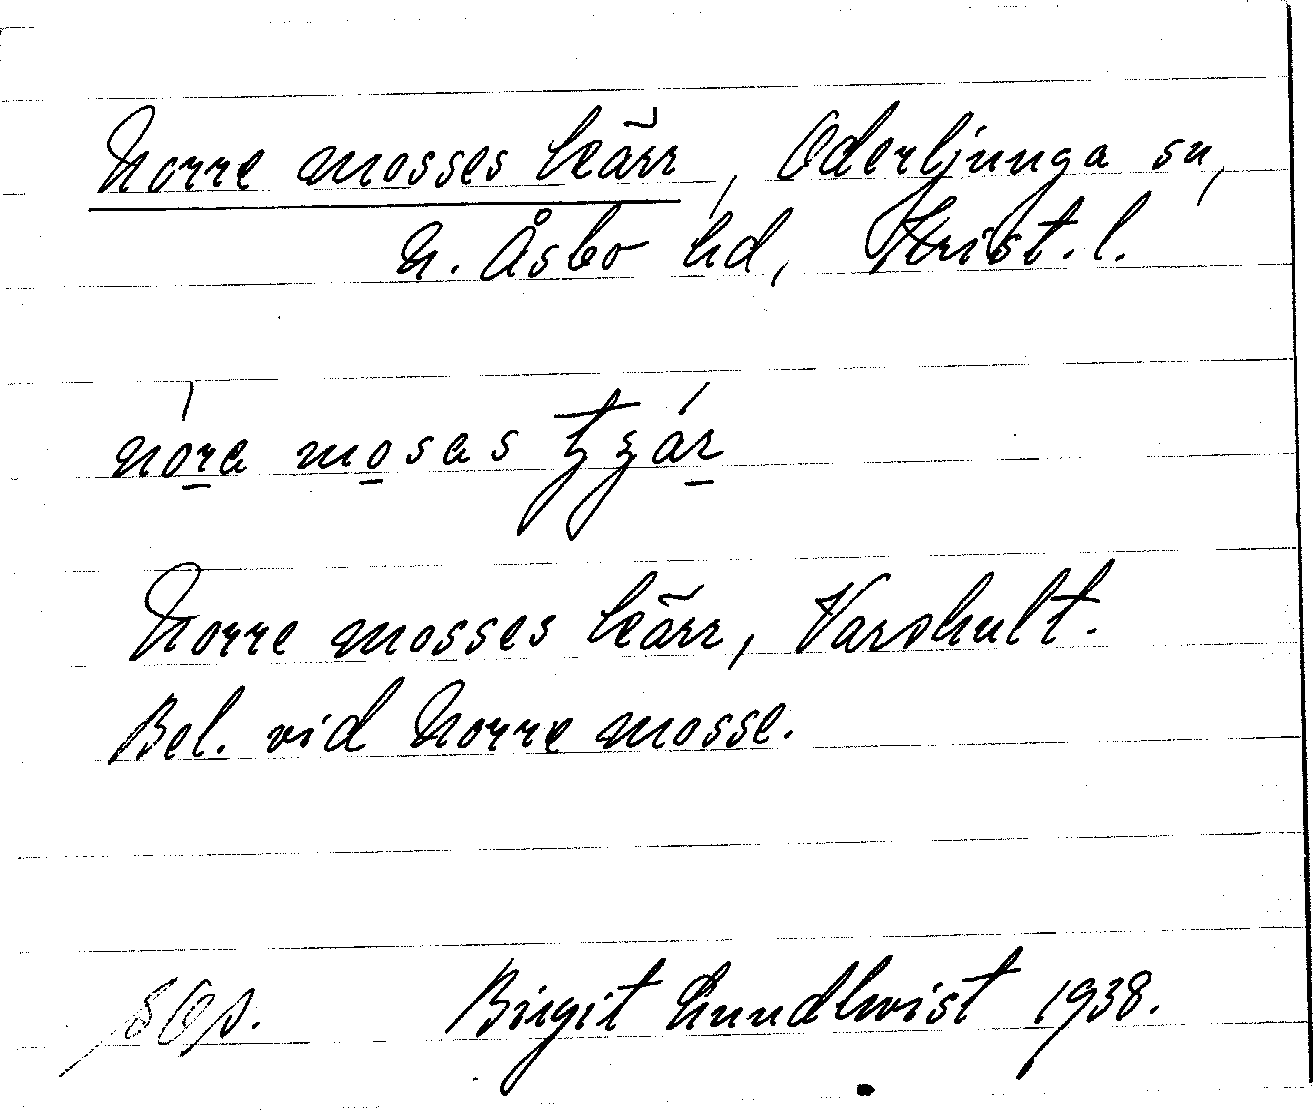 Norre mosses kärr, Oderljunga sn,
N. Åsbo hd, Krist. l.
nóra mosas tʒár
Norre mosses kärr, Varshult.
Bel. vid Norre mosse.
Birgit Lundkvist 1938.